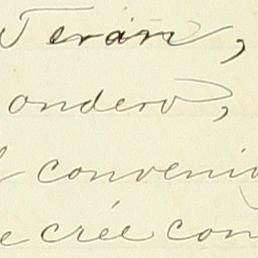 Terán,
ondero,
convenio
e crée con